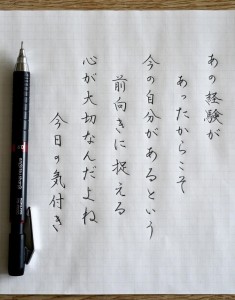 あの経験が
あったからこそ
今の自分があるという
前向きに捉える
心が大切なんだよね
今日の気付き